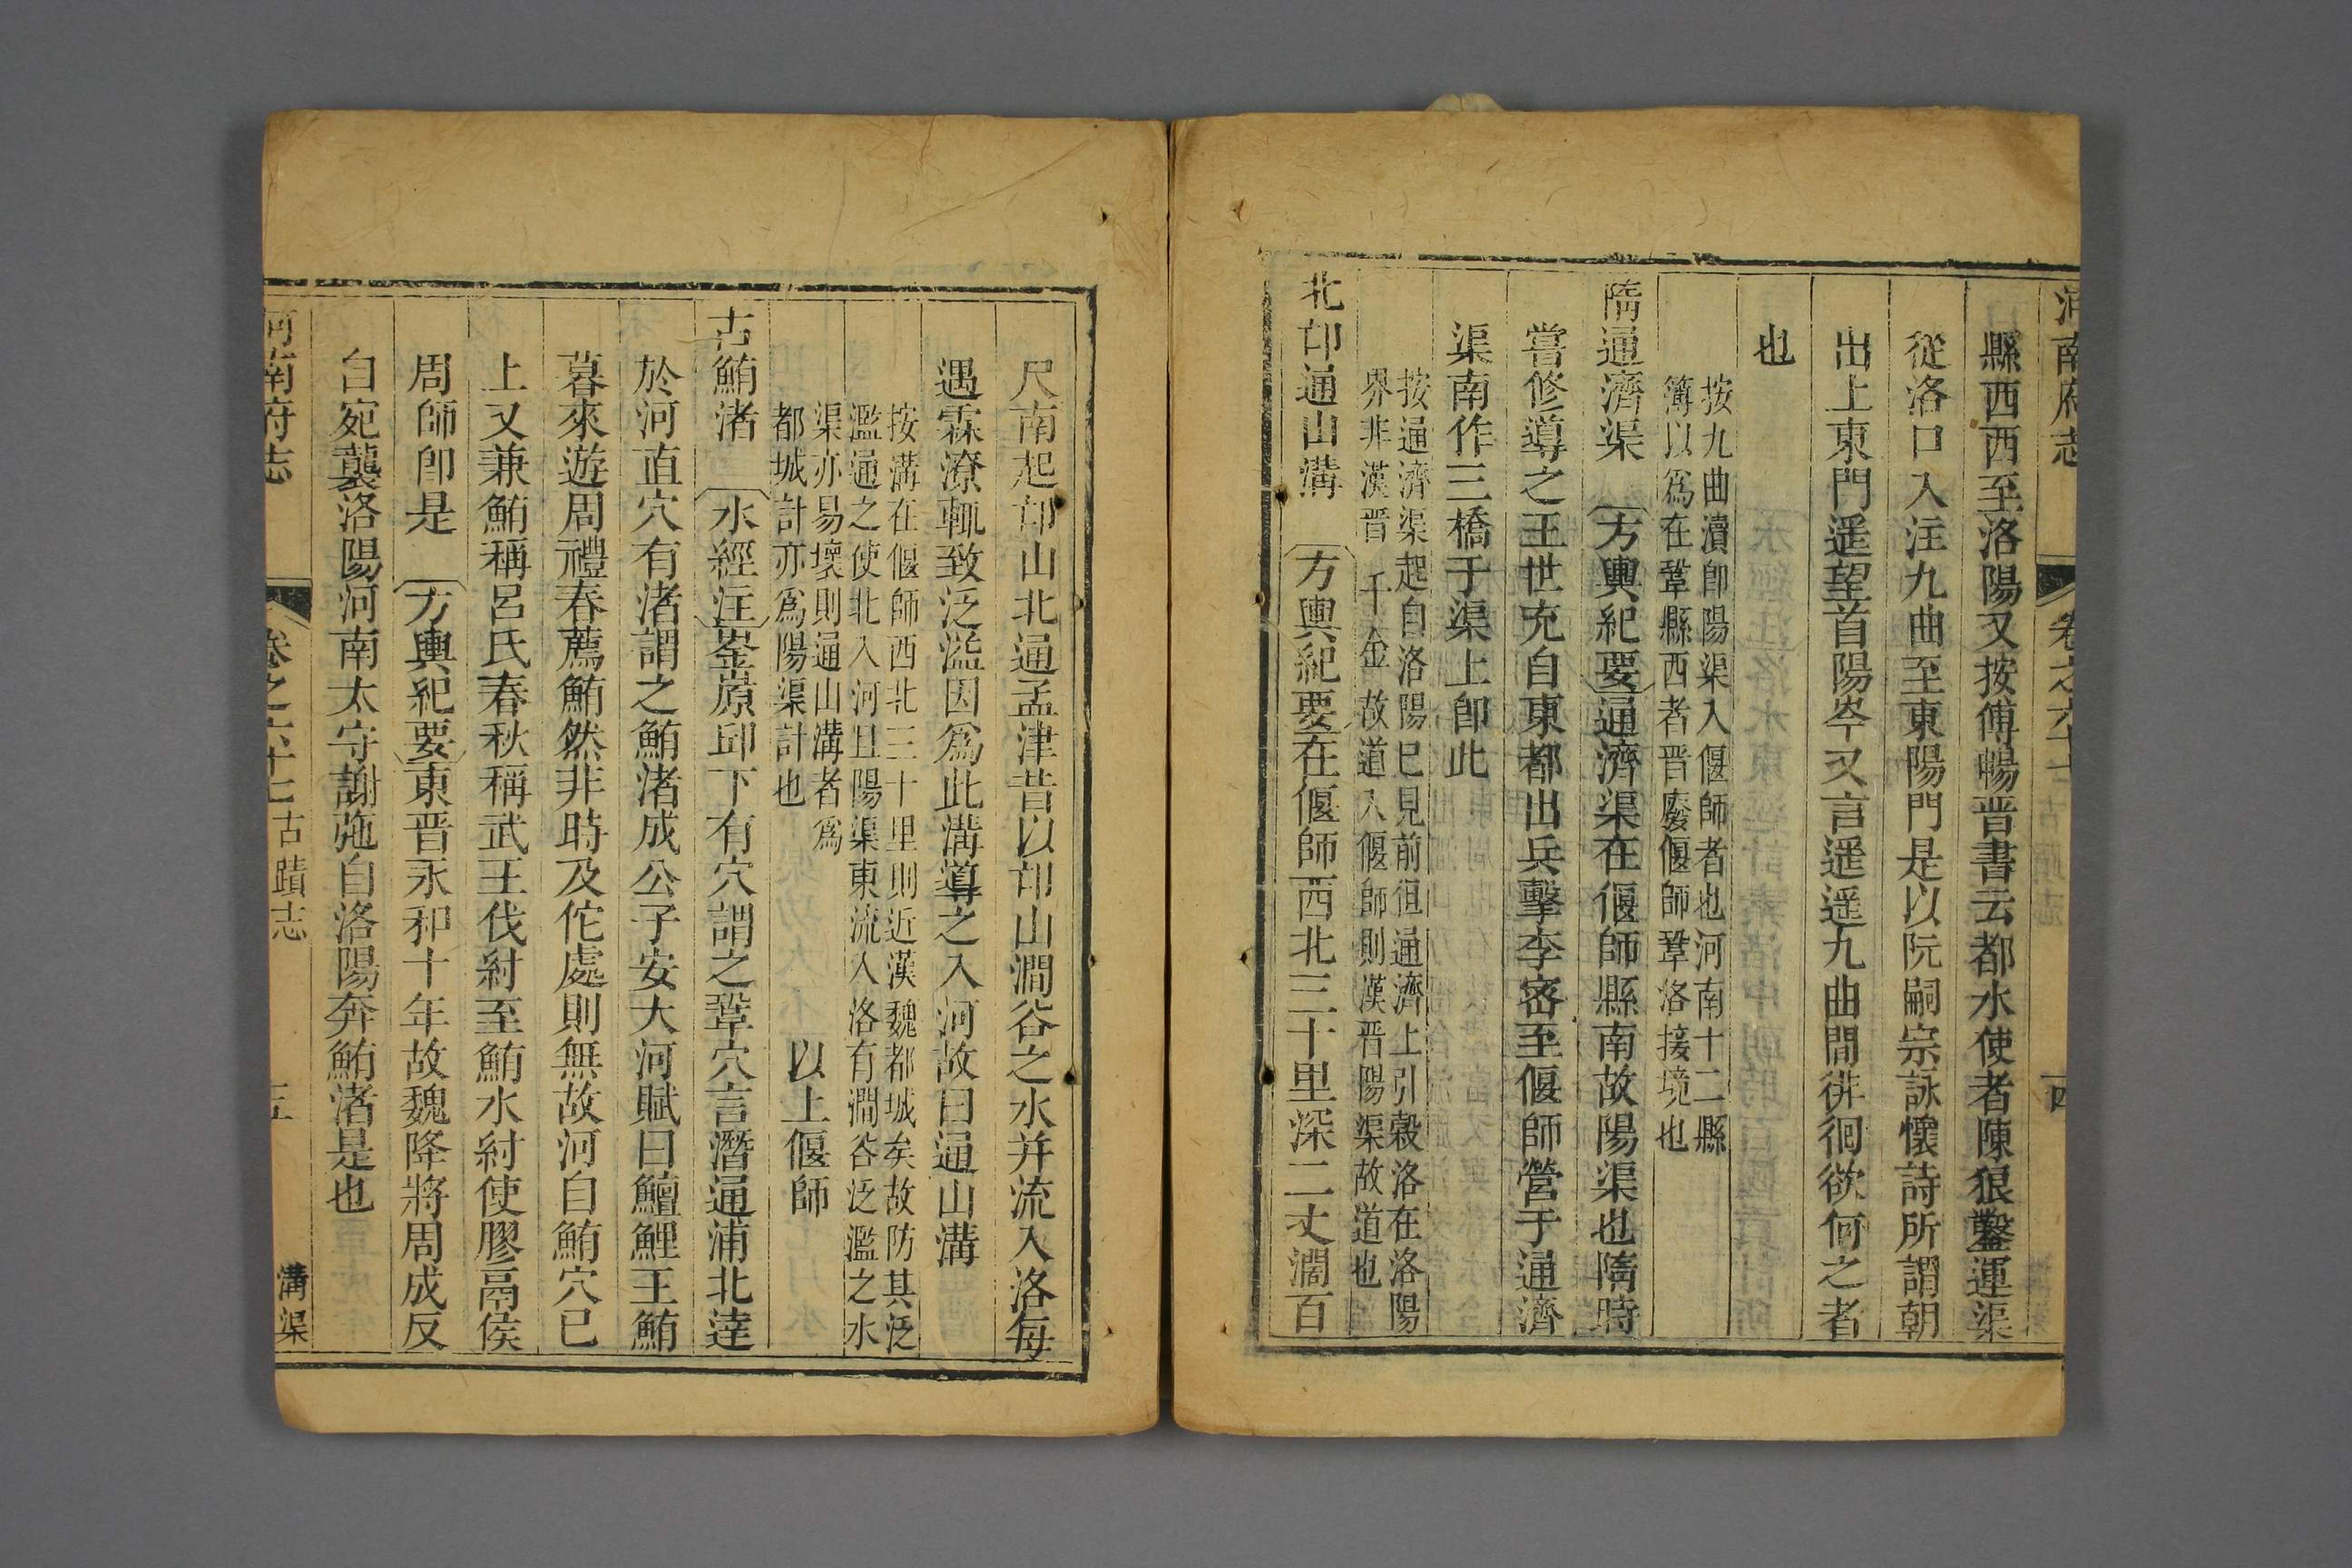 河南府志 卷之六十七 古蹟志 四
縣西西至洛陽又按傅暢晋書云都水使者陳狼鑿運渠
從洛口入注九曲至東陽門是以阮嗣宗詠懷詩所謂朝
出上東門遥望首陽岑又言遥遥九曲間徘徊欲何之者
也
按九曲瀆卽陽渠入偃師者也河南十二縣
簿以爲在鞏縣西者晋廢偃師鞏洛接境也
隋通濟渠 方輿紀要通濟渠在偃師縣南故陽渠也隋時
嘗修導之王世充自東都出兵擊李密至偃師營于通濟
渠南作三橋于渠上卽此
按通濟渠起自洛陽已見前但通濟上引穀洛在洛陽
界非漢晋千金故道入偃師則漢晋陽渠故道也
北邙通山溝 方輿紀要在偃師西北三十里深二丈濶百
尺南起邙山北通孟津昔以邙山澗谷之水并流入洛每
遇霖潦輒致泛溢因爲此溝導之入河故曰通山溝
按溝在偃師西北三十里則近漢魏都城矣故防其泛
濫通之使北入河且陽渠東流入洛有澗谷泛濫之水
渠亦易壞則通山溝者爲
都城計亦爲陽渠計也 以上偃師
古鮪渚 水經注崟原邱下有穴謂之鞏穴言潛通浦北達
於河直穴有渚謂之鮪渚成公子安大河賦曰鱣鯉王鮪
暮來遊周禮春薦鮪然非時及佗處則無故河自鮪穴已
上又兼鮪稱呂氏春秋稱武王伐紂至鮪水紂使膠鬲侯
周師卽是 方輿紀要東晋永和十年故魏降將周成反
自宛襲洛陽河南太守謝𡊮自洛陽奔鮪渚是也
河南府志 卷之六十七 古蹟志 五 溝渠